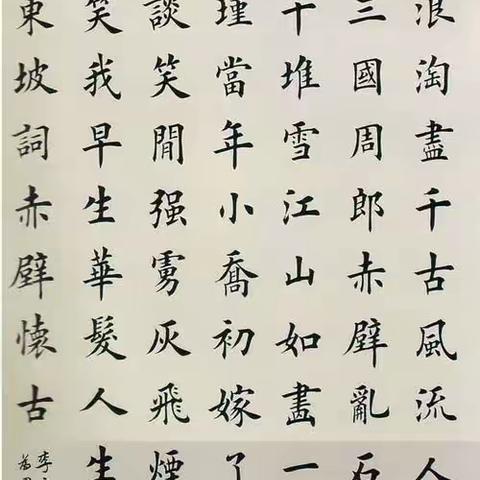 浪淘盡千古風流人
三國周郎赤壁亂石
千堆雪江山如畫一
瑾當年小喬初嫁了
談笑間强虜灰飛煙
笑我早生華髮人生
東坡詞赤壁懷古
李